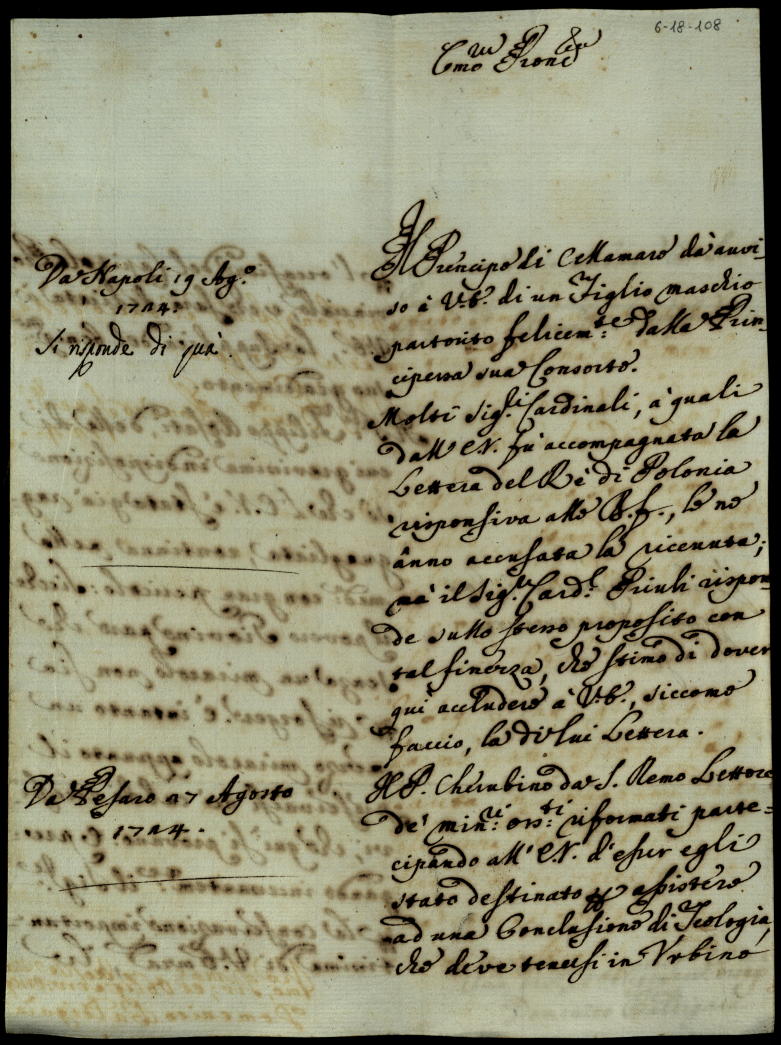 6-18-108
Em̃o Pron̄e
Da Napoli 19 Ag.º
1724.
Si risponde di quà.
Il Principe di Cellamare dà auvi-
so à V.E. di un Figlio maschio
partorito felicem.te dalla Prin-
cipessa sua Consorte.
Molti Sig.ri Cardinali, a' quali
dall' E.V. fù accompagnata la
Lettera del Rè di Polonia
responsiva alle B.f., le ne
ànno accusata la ricevuta;
mà il Sig.r Card.l Priuli rispon-
de sullo stesso proposito con
tal finezza, che stimo di dover
qui accludere à V.E., siccome
faccio, la di lui Lettera.
Da Pesaro 27 Agosto
1724.
Il P. Cherubino da S. Remo Lettore
de' min.ri oss.ti riformati parte-
cipando all' E.V. d'esser egli
stato destinato p assistere
ad una Conclusione di Teologia,
che deve tenersi in Urbino